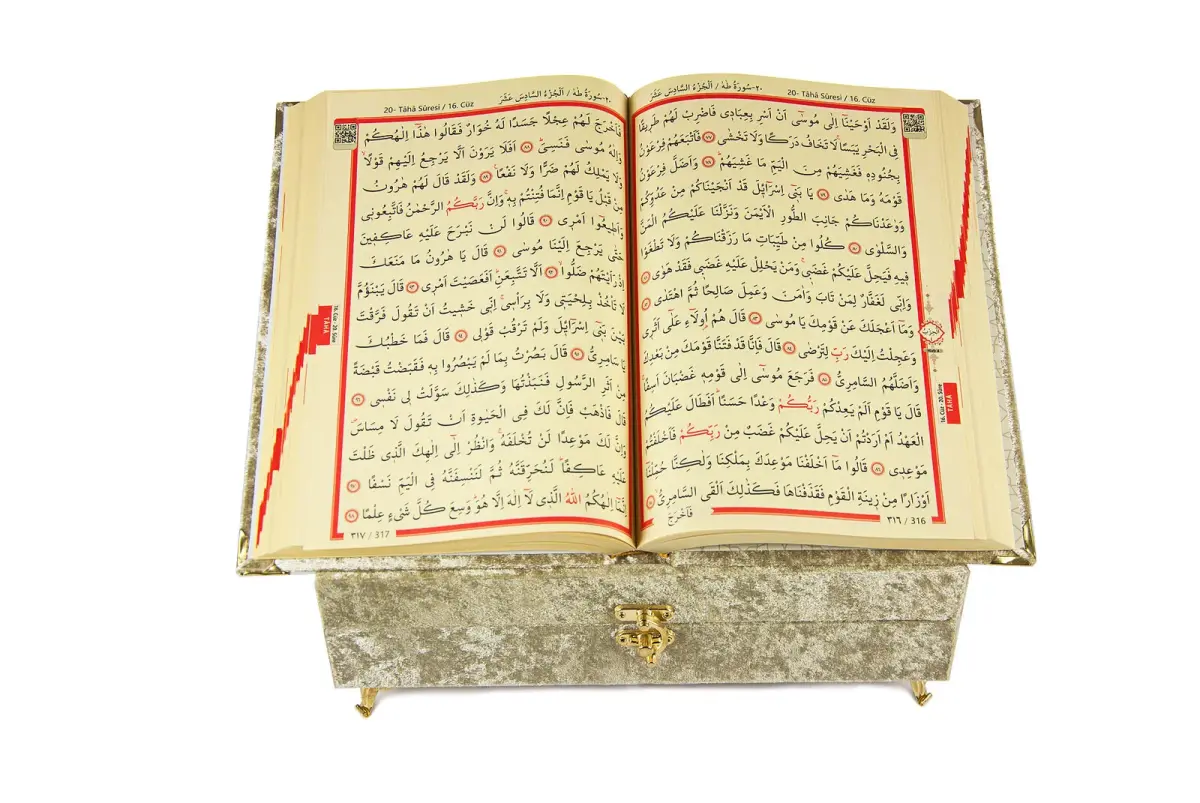 ٢٠-سُورَةُ طٰهٰ / اَلْجُزْءُ السَّادِسَ عَشَرَ
20- Tâhâ Sûresi / 16. Cüz
وَلَقَدْ اَوْحَيْنَٓا اِلٰى مُوسٰٓى اَنْ اَسْرِ بِعِبَادٖى فَاضْرِبْ لَهُمْ طَرٖيقًا
فِى الْبَحْرِ يَبَسًا لَا تَخَافُ دَرَكًا وَلَا تَخْشٰى ﴿٧٧﴾ فَاَتْبَعَهُمْ فِرْعَوْنُ
بِجُنُودِهٖ فَغَشِيَهُمْ مِنَ الْيَمِّ مَا غَشِيَهُمْ ﴿٧٨﴾ وَاَضَلَّ فِرْعَوْنُ
قَوْمَهُ وَمَا هَدٰى ﴿٧٩﴾ يَا بَنٖٓى اِسْرَٓائٖلَ قَدْ اَنْجَيْنَاكُمْ مِنْ عَدُوِّكُمْ
وَوٰعَدْنَاكُمْ جَانِبَ الطُّورِ الْاَيْمَنَ وَنَزَّلْنَا عَلَيْكُمُ الْمَنَّ
وَالسَّلْوٰى ﴿٨٠﴾ كُلُوا مِنْ طَيِّبَاتِ مَا رَزَقْنَاكُمْ وَلَا تَطْغَوْا
فٖيهِ فَيَحِلَّ عَلَيْكُمْ غَضَبٖى وَمَنْ يَحْلِلْ عَلَيْهِ غَضَبٖى فَقَدْ هَوٰى ﴿٨١﴾
وَاِنّٖى لَغَفَّارٌ لِمَنْ تَابَ وَاٰمَنَ وَعَمِلَ صَالِحًا ثُمَّ اهْتَدٰى ﴿٨٢﴾
وَمَٓا اَعْجَلَكَ عَنْ قَوْمِكَ يَا مُوسٰى ﴿٨٣﴾ قَالَ هُمْ اُولَٓاءِ عَلٰٓى اَثَرٖى
وَعَجِلْتُ اِلَيْكَ رَبِّ لِتَرْضٰى ﴿٨٤﴾ قَالَ فَاِنَّا قَدْ فَتَنَّا قَوْمَكَ مِنْ بَعْدِكَ
وَاَضَلَّهُمُ السَّامِرِىُّ ﴿٨٥﴾ فَرَجَعَ مُوسٰٓى اِلٰى قَوْمِهٖ غَضْبَانَ اَسِفًا
قَالَ يَا قَوْمِ اَلَمْ يَعِدْكُمْ رَبُّكُمْ وَعْدًا حَسَنًا اَفَطَالَ عَلَيْكُمُ
الْعَهْدُ اَمْ اَرَدْتُمْ اَنْ يَحِلَّ عَلَيْكُمْ غَضَبٌ مِنْ رَبِّكُمْ فَاَخْلَفْتُمْ
مَوْعِدٖى ﴿٨٦﴾ قَالُوا مَٓا اَخْلَفْنَا مَوْعِدَكَ بِمَلْكِنَا وَلٰكِنَّا حُمِّلْنَٓا
اَوْزَارًا مِنْ زٖينَةِ الْقَوْمِ فَقَذَفْنَاهَا فَكَذٰلِكَ اَلْقَى السَّامِرِىُّ ﴿٨٧﴾
فَاَخْرَجَ
٣١٦ / 316
16. Cüz 20. Sûre
TÂHÂ
٢٠-سُورَةُ طٰهٰ / اَلْجُزْءُ السَّادِسَ عَشَرَ
20- Tâhâ Sûresi / 16. Cüz
فَاَخْرَجَ لَهُمْ عِجْلًا جَسَدًا لَهُ خُوَارٌ فَقَالُوا هٰذَٓا اِلٰهُكُمْ
وَاِلٰهُ مُوسٰى فَنَسِىَ ﴿٨٨﴾ اَفَلَا يَرَوْنَ اَلَّا يَرْجِعُ اِلَيْهِمْ قَوْلًا
وَلَا يَمْلِكُ لَهُمْ ضَرًّا وَلَا نَفْعًا ﴿٨٩﴾ وَلَقَدْ قَالَ لَهُمْ هٰرُونُ
مِنْ قَبْلُ يَا قَوْمِ اِنَّمَا فُتِنْتُمْ بِهٖ وَاِنَّ رَبَّكُمُ الرَّحْمٰنُ فَاتَّبِعُونٖى
وَاَطٖيعُٓوا اَمْرٖى ﴿٩٠﴾ قَالُوا لَنْ نَبْرَحَ عَلَيْهِ عَاكِفٖينَ
حَتّٰى يَرْجِعَ اِلَيْنَا مُوسٰى ﴿٩١﴾ قَالَ يَا هٰرُونُ مَا مَنَعَكَ
اِذْ رَاَيْتَهُمْ ضَلُّوا ﴿٩٢﴾ اَلَّا تَتَّبِعَنِ اَفَعَصَيْتَ اَمْرٖى ﴿٩٣﴾ قَالَ يَبْنَؤُ۬مَّ
لَا تَأْخُذْ بِلِحْيَتٖى وَلَا بِرَأْسٖى اِنّٖى خَشٖيتُ اَنْ تَقُولَ فَرَّقْتَ
بَيْنَ بَنٖٓى اِسْرَٓائٖلَ وَلَمْ تَرْقُبْ قَوْلٖى ﴿٩٤﴾ قَالَ فَمَا خَطْبُكَ
يَا سَامِرِىُّ ﴿٩٥﴾ قَالَ بَصُرْتُ بِمَا لَمْ يَبْصُرُوا بِهٖ فَقَبَضْتُ قَبْضَةً
مِنْ اَثَرِ الرَّسُولِ فَنَبَذْتُهَا وَكَذٰلِكَ سَوَّلَتْ لٖى نَفْسٖى ﴿٩٦﴾
قَالَ فَاذْهَبْ فَاِنَّ لَكَ فِى الْحَيٰوةِ اَنْ تَقُولَ لَا مِسَاسَ
وَاِنَّ لَكَ مَوْعِدًا لَنْ تُخْلَفَهُ وَانْظُرْ اِلٰٓى اِلٰهِكَ الَّذٖى ظَلْتَ
عَلَيْهِ عَاكِفًا لَنُحَرِّقَنَّهُ ثُمَّ لَنَنْسِفَنَّهُ فِى الْيَمِّ نَسْفًا ﴿٩٧﴾
اِنَّمَٓا اِلٰهُكُمُ اللّٰهُ الَّذٖى لَٓا اِلٰهَ اِلَّا هُوَ وَسِعَ كُلَّ شَىْءٍ عِلْمًا ﴿٩٨﴾
٣١٧ / 317
16. Cüz 20. Sûre
TÂHÂ